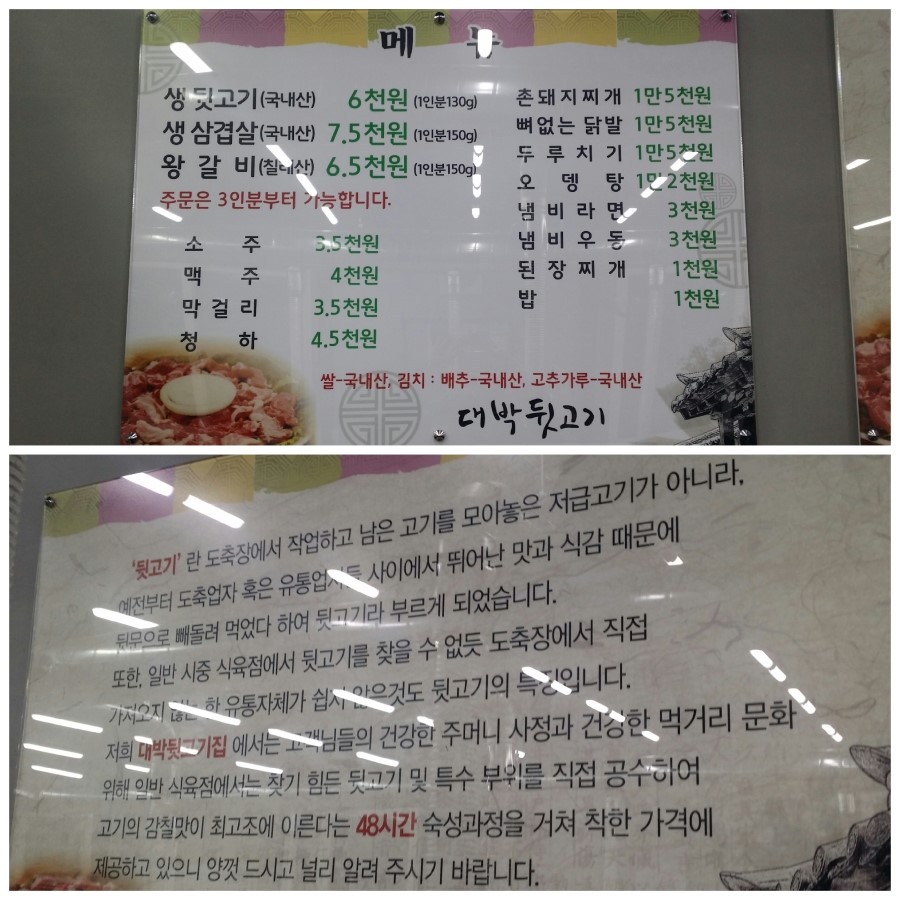 메 뉴
생 뒷고기(국내산) 6천원 (1인분130g)
생 삼겹살(국내산) 7.5천원 (1인분150g)
왕 갈 비(칠레산) 6.5천원 (1인분150g)
주문은 3인분부터 가능합니다.
소 주 3.5천원
맥 주 4천원
막 걸 리 3.5천원
청 하 4.5천원
촌돼지찌개 1만5천원
뼈없는 닭발 1만5천원
두 루 치 기 1만5천원
오 뎅 탕 1만2천원
냄 비 라 면 3천원
냄 비 우 동 3천원
된 장 찌 개 1천원
밥 1천원
쌀-국내산, 김치 : 배추-국내산, 고추가루-국내산
대박뒷고기
'뒷고기' 란 도축장에서 작업하고 남은 고기를 모아놓은 저급고기가 아니라,
예전부터 도축업자 혹은 유통업자들 사이에서 뛰어난 맛과 식감 때문에
뒷문으로 빼돌려 먹었다 하여 뒷고기라 부르게 되었습니다.
또한, 일반 시중 식육점에서 뒷고기를 찾을 수 없듯 도축장에서 직접
가져오지 않는 한 유통자체가 쉽지 않은것도 뒷고기의 특징입니다.
저희 대박뒷고기집 에서는 고객님들의 건강한 주머니 사정과 건강한 먹거리 문화
위해 일반 식육점에서는 찾기 힘든 뒷고기 및 특수 부위를 직접 공수하여
고기의 감칠맛이 최고조에 이른다는 48시간 숙성과정을 거쳐 착한 가격에
제공하고 있으니 양껏 드시고 널리 알려 주시기 바랍니다.